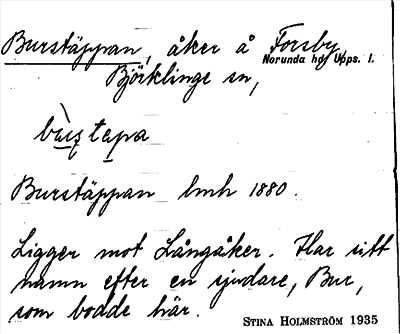 Burstäppan, åker å Forsby,
Norunda hd, Upps. l.
Björklinge sn,
bùs̩ tæpa
Burstäppan lmh 1880.
Ligger mot Långåker. Har sitt
namn efter en sjudare, Bur,
som bodde här.
STINA HOLMSTRÖM 1935